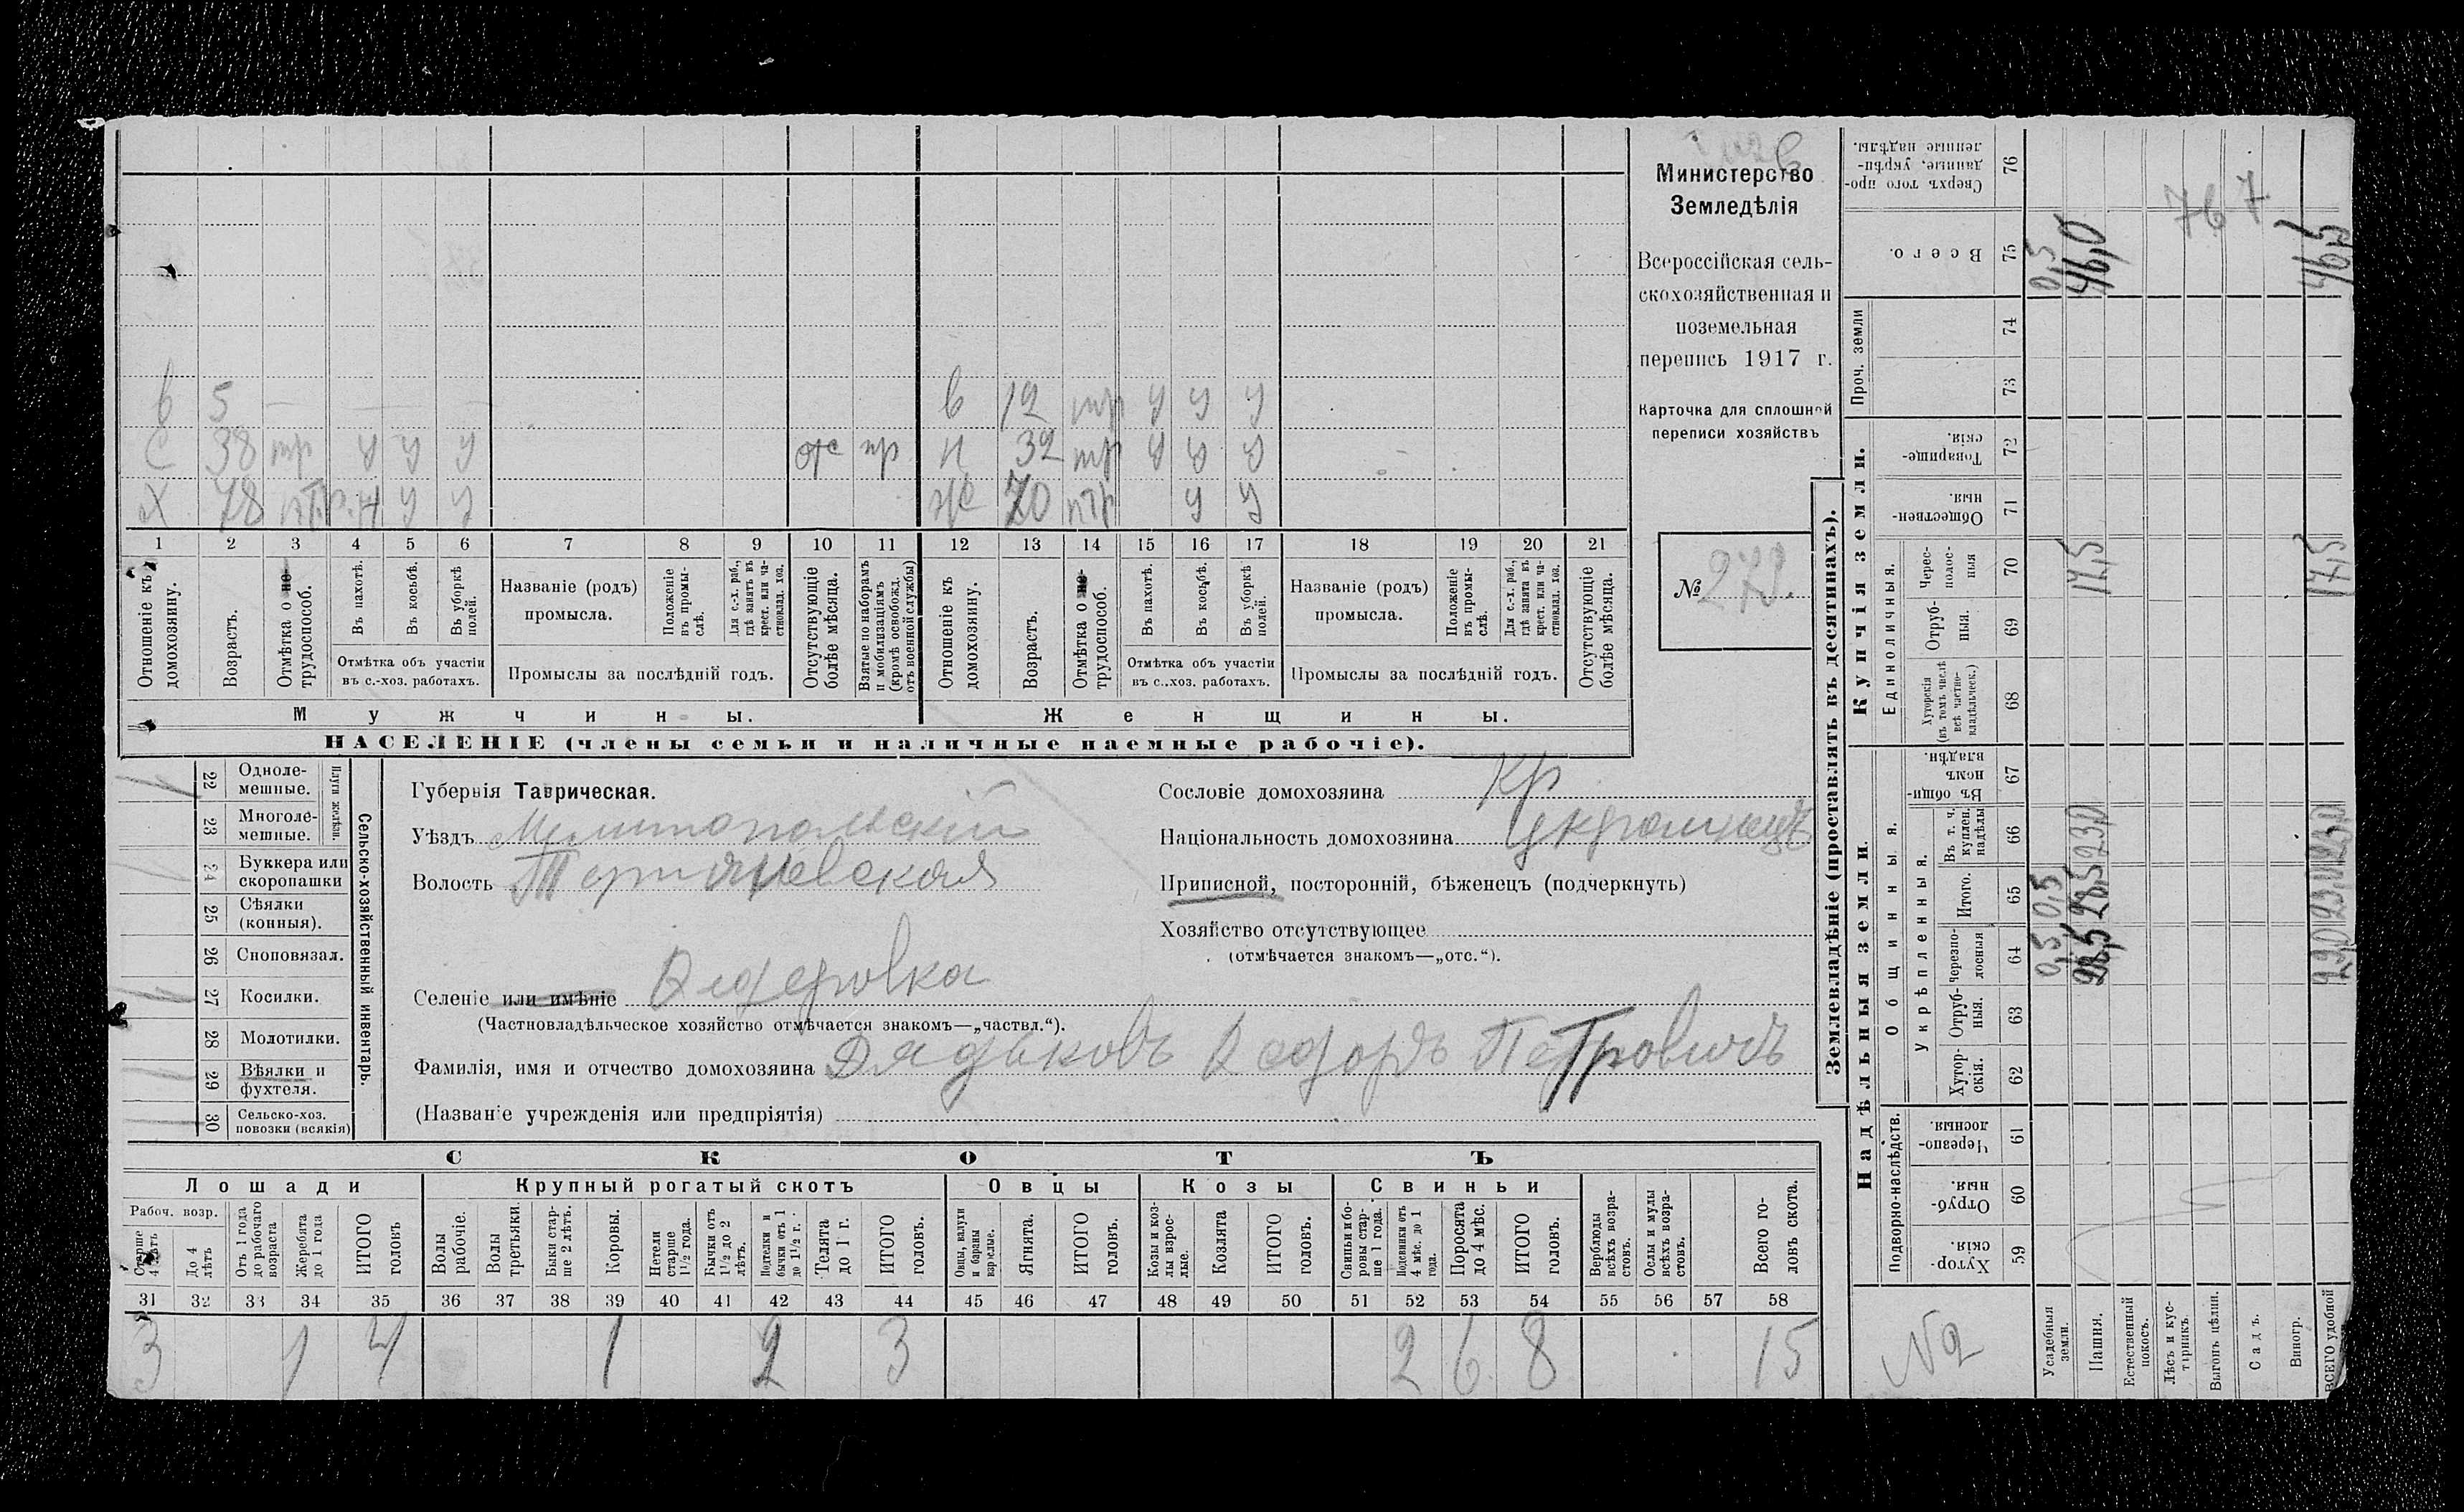 Министерство
Земледѣлія
Всероссійская сель-
скохозяйственная и
поземельная
перепись 1917 г.
Карточка для сплошной
переписи хозяйствъ
№ 272.
в 5 — — — в 12 тр у у у
С 38 тр у у у отс пр н 32 тр у у у
Х 78 птр. н у у ж 70 птр у у
1 2 3 4 5 6 7 8 9 10 11 12 13 14 15 16 17 18 19 20 21
Отношеніе къ домохозяину.
Возрастъ.
Отмѣтка о не-трудоспособ.
Въ пахотѣ.
Въ косьбѣ.
Въ уборкѣ полей.
Отмѣтка объ участіи
въ с.-хоз. работахъ.
Названіе (родъ)
промысла.
Положеніе въ промы-слѣ.
Для с.-х. раб., гдѣ занятъ въ крест. или ча-стновлад. хоз.
Промыслы за послѣдній годъ.
Отсутствующіе болѣе мѣсяца.
Взятые по наборамъ и мобилизаціямъ (кромѣ освобожд. отъ военной службы)
Отношеніе къ домохозяину.
Возрастъ.
Отмѣтка о не-трудоспособ.
Въ пахотѣ.
Въ косьбѣ.
Въ уборкѣ полей.
Отмѣтка объ участіи
въ с.-хоз. работахъ.
Названіе (родъ)
промысла.
Положеніе въ промы-слѣ.
Для с.-х. раб., гдѣ занята въ крест. или ча-стновлад. хоз.
Промыслы за послѣдній годъ.
Отсутствующіе болѣе мѣсяца.
Мужчины. Женщины.
НАСЕЛЕНІЕ (члены семьи и наличные наемные рабочіе).
Сельско-хозяйственный инвентарь.
Плуги желѣзн.
22 Одноле-мешные.
23 Многоле-мешные.
24 Буккера или скоропашки
25 Сѣялки (конныя).
26 Споповязал.
27 Косилки.
28 Молотилки.
29 Вѣялки и фухтеля.
30 Сельско-хоз. повозки (всякія)
Губернія Таврическая.
Уѣздъ Мелитопольскій
Волость
Селеніе или имѣніе Федоровка
(Частновладѣльческое хозяйство отмѣчается знакомъ—„частвл.“).
Фамилія, имя и отчество домохозяина Дядьковъ Федоръ Петровичъ
(Названіе учрежденія или предпріятія)
Сословіе домохозяина Кр
Національность домохозяина Украинецъ
Приписной, посторонній, бѣженецъ (подчеркнуть)
Хозяйство отсутствующее
(отмѣчается знакомъ—„отс.“).
СКОТЪ
Лошади Крупный рогатый скотъ Овцы Козы Свиньи
Рабоч. возр.
Старше 4 лѣтъ
До 4 лѣтъ
Отъ 1 года до рабочаго возраста
Жеребята до 1 года
ИТОГО головъ
Волы рабочіе.
Волы третьяки.
Быки стар-ше 2 лѣтъ.
Коровы.
Нетели старше 1½ года.
Бычки отъ 1½ до 2 лѣтъ.
Подтелки и бычки отъ 1 до 1½ г.
Телята до 1 г.
ИТОГО головъ.
Овцы, валухи и бараны взрослые.
Ягнята.
ИТОГО головъ.
Козы и коз-лы взрос-лые.
Козлята
ИТОГО головъ.
Свиньи и бо-ровы стар-ше 1 года.
Подсвинки отъ 4 мѣс. до 1 года.
Поросята до 4 мѣс.
ИТОГО головъ.
Верблюды всѣхъ возра-стовъ.
Ослы и мулы всѣхъ возра-стовъ.
Всего го-ловъ скота.
31 32 33 34 35 36 37 38 39 40 41 42 43 44 45 46 47 48 49 50 51 52 53 54 55 56 57 58
3 1 4 1 2 3 2 6 8 15
Землевладѣніе (проставлять въ десятинахъ).
Надѣльныя земли. Купчія земли. Проч. земли
Подворно-наслѣдств.
Общинныя.
Укрѣпленныя.
Единоличныя.
Хутор-скія. 59
Отруб-ныя. 60
Черезпо-лосныя. 61
Хутор-скія. 62
Отруб-ныя. 63
Черезпо-лосныя 64
Итого. 65
Въ т. ч. куплен. надѣлы 66
Въ общин-номъ владѣн. 67
Хуторскія (въ томъ числѣ всѣ частно-владѣльческ.) 68
Отруб-ныя. 69
Черес-полос-ныя 70
Обществен-ныя. 71
Товарище-скія. 72
73
74
Всего. 75
Сверхъ того про-данные, укрѣп-ленные надѣлы. 76
№2
Усадебныя земли. 0,5 0,5 0,5
Пашня. 28,5 28,5 23,0 17,5 46,0
Естественный покосъ.
Лѣсъ и кус-тарникъ.
Выгонъ цѣлин.
Садъ.
Виногр.
ВСЕГО удобной 29,0 29,0 23,0 17,5 46,5
767